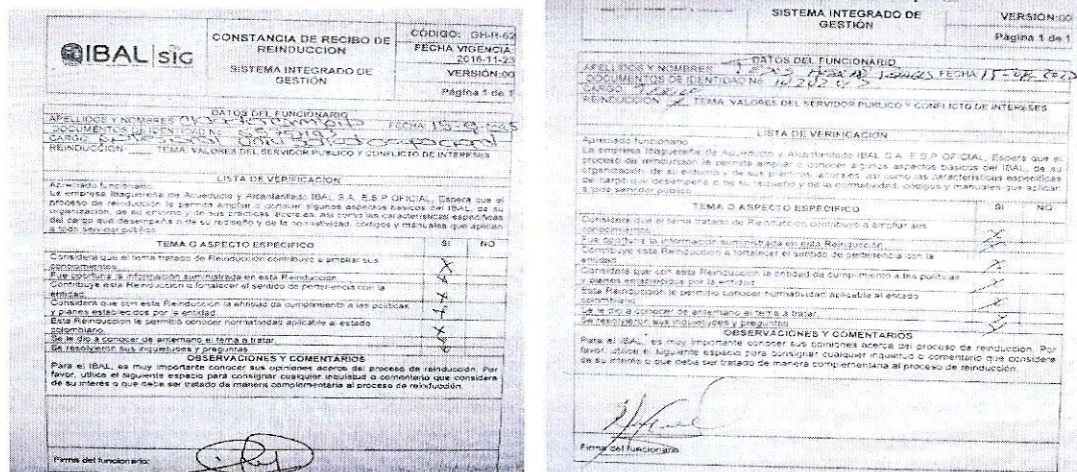 IBAL sig
CONSTANCIA DE RECIBO DE
REINDUCCION
SISTEMA INTEGRADO DE
GESTIÓN
CÓDIGO: GH-R-62
FECHA VIGENCIA:
2016-11-23
VERSIÓN:00
Página 1 de 1
DATOS DEL FUNCIONARIO
APELLIDOS Y NOMBRES
FECHA
DOCUMENTOS DE IDENTIDAD No
CARGO
REINDUCCIÓN TEMA: VALORES DEL SERVIDOR PUBLICO Y CONFLICTO DE INTERESES
LISTA DE VERIFICACION
Apreciado funcionario
La empresa Ibaguereña de Acueducto y Alcantarillado IBAL S.A. E.S.P OFICIAL, Espera que el
proceso de reinducción le permita ampliar o conocer algunos aspectos básicos del IBAL, de su
organización, de su entorno y de sus prácticas laborales, así como las características específicas
del cargo que desempeña o de su rediseño y de la normatividad, códigos y manuales que aplican
a todo servidor público
TEMA O ASPECTO ESPECIFICO SI NO
Considera que el tema tratado de Reinducción contribuyo a ampliar sus
conocimientos.
Fue oportuna la información suministrada en esta Reinducción
Contribuye esta Reinducción a fortalecer el sentido de pertenencia con la
entidad.
Considera que con esta Reinducción la entidad da cumplimiento a las políticas
y planes establecidos por la entidad.
Esta Reinducción le permitió conocer normatividad aplicable al estado
colombiano.
Se le dio a conocer de antemano el tema a tratar.
Se resolvieron sus inquietudes y preguntas.
OBSERVACIONES Y COMENTARIOS
Para el IBAL, es muy importante conocer sus opiniones acerca del proceso de reinducción. Por
favor, utilice el siguiente espacio para consignar cualquier inquietud o comentario que considere
de su interés o que deba ser tratado de manera complementaria al proceso de reinducción.
Firma del funcionario:
SISTEMA INTEGRADO DE
GESTIÓN
VERSIÓN:00
Página 1 de 1
DATOS DEL FUNCIONARIO
APELLIDOS Y NOMBRES
FECHA
DOCUMENTOS DE IDENTIDAD No
CARGO
REINDUCCION X TEMA: VALORES DEL SERVIDOR PUBLICO Y CONFLICTO DE INTERESES
LISTA DE VERIFICACION
Apreciado funcionario
La empresa Ibaguereña de Acueducto y Alcantarillado IBAL S.A. E.S.P OFICIAL, Espera que el
proceso de reinducción le permita ampliar o conocer algunos aspectos básicos del IBAL, de su
organización, de su entorno y de sus prácticas laborales, así como las características específicas
del cargo que desempeña o de su rediseño y de la normatividad, códigos y manuales que aplican
a todo servidor público
TEMA O ASPECTO ESPECIFICO SI NO
Considera que el tema tratado de Reinducción contribuyo a ampliar sus
conocimientos.
Fue oportuna la información suministrada en esta Reinducción
Contribuye esta Reinducción a fortalecer el sentido de pertenencia con la
entidad.
Considera que con esta Reinducción la entidad da cumplimiento a las políticas
y planes establecidos por la entidad.
Esta Reinducción le permitió conocer normatividad aplicable al estado
colombiano.
Se le dio a conocer de antemano el tema a tratar.
Se resolvieron sus inquietudes y preguntas.
OBSERVACIONES Y COMENTARIOS
Para el IBAL, es muy importante conocer sus opiniones acerca del proceso de reinducción. Por
favor, utilice el siguiente espacio para consignar cualquier inquietud o comentario que considere
de su interés o que deba ser tratado de manera complementaria al proceso de reinducción.
Firma del funcionario